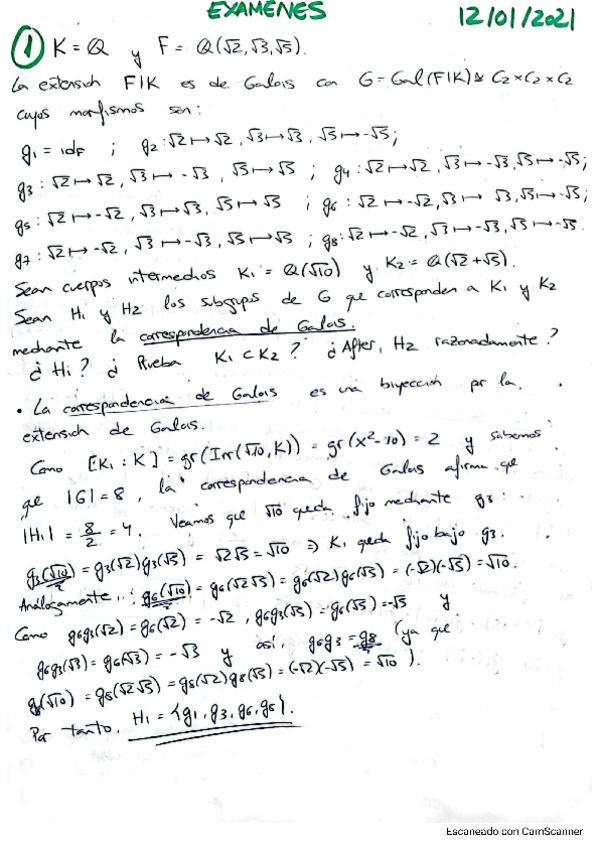 EXAMENES 12/01/2021
① K = Q y F = Q(√2, √3, √5).
La extensión F|K es de Galois con G = Gal(F|K) ≅ C₂×C₂×C₂
cuyos morfismos son:
g₁ = id_F ; g₂ : √2 ↦ √2, √3 ↦ √3, √5 ↦ -√5;
g₃ : √2 ↦ √2, √3 ↦ -√3, √5 ↦ √5 ; g₄ : √2 ↦ √2, √3 ↦ -√3, √5 ↦ -√5;
g₅ : √2 ↦ -√2, √3 ↦ √3, √5 ↦ √5 ; g₆ : √2 ↦ -√2, √3 ↦ √3, √5 ↦ -√5;
g₇ : √2 ↦ -√2, √3 ↦ -√3, √5 ↦ √5 ; g₈ : √2 ↦ -√2, √3 ↦ -√3, √5 ↦ -√5.
Sean cuerpos intermedios K₁ = Q(√10) y K₂ = Q(√2+√5).
Sean H₁ y H₂ los subgrupos de G que corresponden a K₁ y K₂
mediante la correspondencia de Galois.
¿ H₁ ? ¿ Prueba K₁ ⊂ K₂ ? ¿ After, H₂ razonadamente ?
• La correspondencia de Galois es una biyección por la
extensión de Galois.
Como [K₁ : K] = gr(Irr(√10, K)) = gr(x²-10) = 2 y sabemos
que |G| = 8, la correspondencia de Galois afirma que
|H₁| = 8/2 = 4. Veamos que √10 queda fijo mediante g₃ :
g₃(√10) = g₃(√2)g₃(√5) = √2√5 = √10 ⇒ K₁ queda fijo bajo g₃.
Análogamente : g₆(√10) = g₆(√2√5) = g₆(√2)g₆(√5) = (-√2)(-√5) = √10.
Como g₆g₃(√2) = g₆(√2) = -√2, g₆g₃(√5) = g₆(√5) = -√5 y
g₆g₃(√3) = g₆(√3) = -√3 y así, g₆g₃ = g₈ (ya que
g₈(√10) = g₈(√2√5) = g₈(√2)g₈(√5) = (-√2)(-√5) = √10 ).
Por tanto, H₁ = {g₁, g₃, g₆, g₈}.
Escaneado con CamScanner